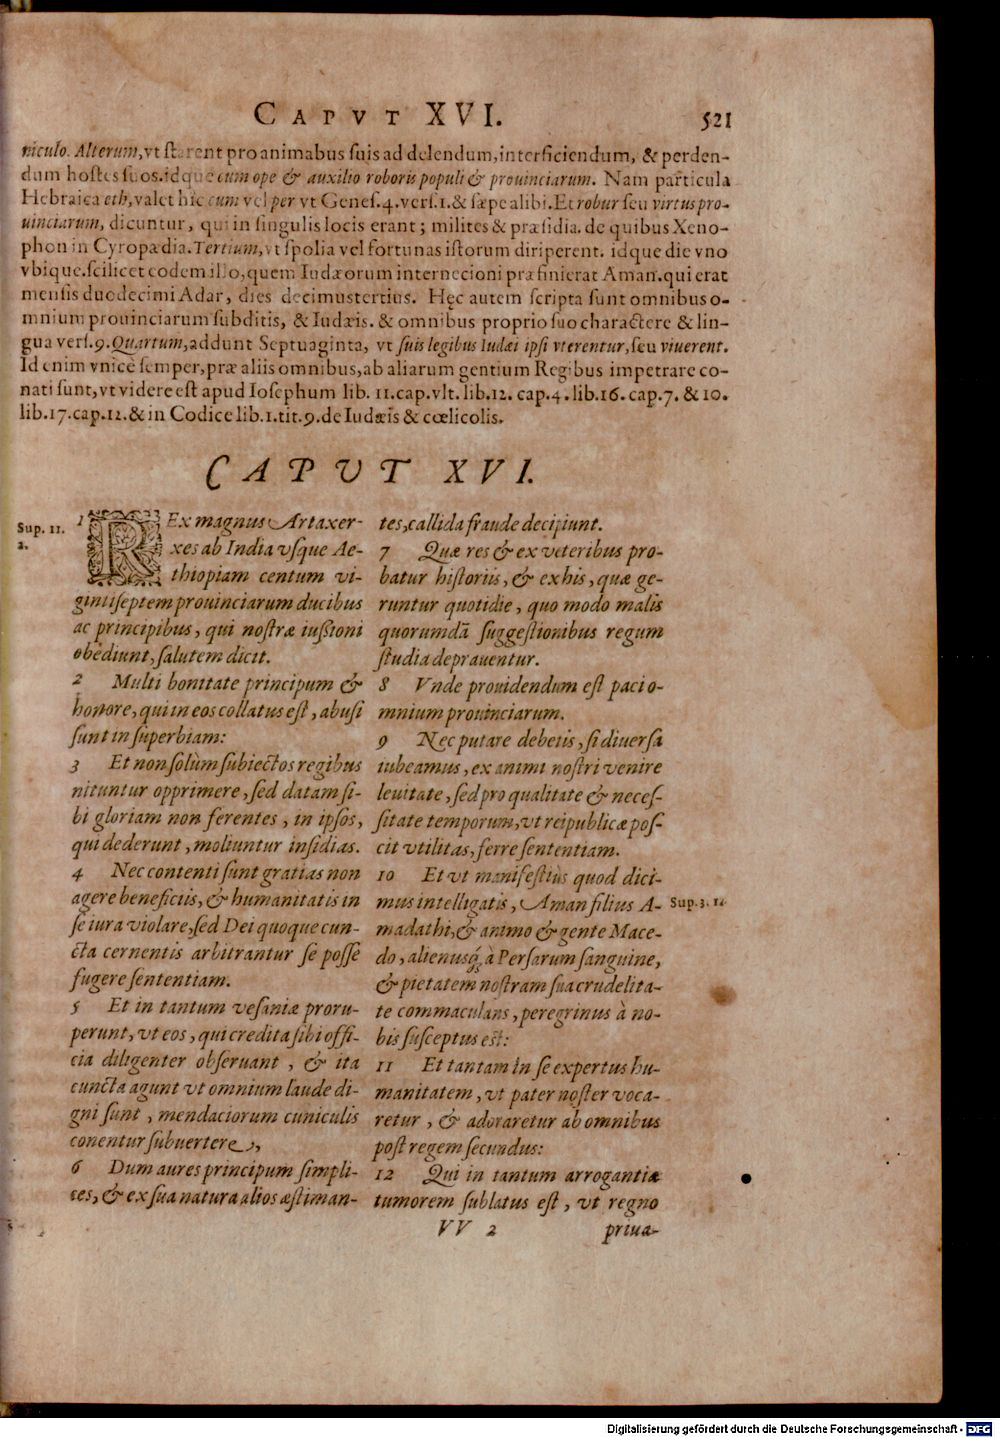 CAPVT XVI. 521
riculo. Alterum, vt starent pro animabus suis ad delendum, interficiendum, & perden-
dum hostes suos. idque cum ope & auxilio roboris populi & prouinciarum. Nam particula
Hebraica eth, valet hic cum vel per vt Genes. 4. vers. 1. & sæpe alibi. Et robur seu virtus pro-
uinciarum, dicuntur, qui in singulis locis erant; milites & præsidia. de quibus Xeno-
phon in Cyropædia. Tertium, vt spolia vel fortunas istorum diriperent. idque die vno
vbique. scilicet eodem illo, quem Iudæorum internecioni præfinierat Aman. qui erat
mensis duodecimi Adar, dies decimustertius. Hęc autem scripta sunt omnibus o-
mnium prouinciarum subditis, & Iudæis. & omnibus proprio suo charactere & lin-
gua vers. 9. Quartum, addunt Septuaginta, vt suis legibus Iudæi ipsi vterentur, seu viuerent.
Id enim vnice semper, præ aliis omnibus, ab aliarum gentium Regibus impetrare co-
nati sunt, vt videre est apud Iosephum lib. 11. cap. vlt. lib. 12. cap. 4. lib. 16. cap. 7. & 10.
lib. 17. cap. 12. & in Codice lib. 1. tit. 9. de Iudæis & cœlicolis.
CAPUT XVI.
Sup. 11.
2.
1 REx magnus Artaxer-
xes ab India vsque Ae-
thiopiam centum vi-
gintiseptem prouinciarum ducibus
ac principibus, qui nostræ iussioni
obediunt, salutem dicit.
2 Multi bonitate principum &
honore, qui in eos collatus est, abusi
sunt in superbiam:
3 Et non solùm subiectos regibus
nituntur opprimere, sed datam si-
bi gloriam non ferentes, in ipsos,
qui dederunt, moliuntur insidias.
4 Nec contenti sunt gratias non
agere beneficiis, & humanitatis in
se iura violare, sed Dei quoque cun-
cta cernentis arbitrantur se posse
fugere sententiam.
5 Et in tantum vesaniæ proru-
perunt, vt eos, qui credita sibi offi-
cia diligenter obseruant, & ita
cuncta agunt vt omnium laude di-
gni sunt, mendaciorum cuniculis
conentur subuertere,
6 Dum aures principum simpli-
ces, & ex sua natura alios æstiman-
tes, callida fraude decipiunt.
7 Quæ res & ex veteribus pro-
batur historiis, & ex his, quæ ge-
runtur quotidie, quo modo malis
quorumdã suggestionibus regum
studia deprauentur.
8 Vnde prouidendum est paci o-
mnium prouinciarum.
9 Nec putare debetis, si diuersa
iubeamus, ex animi nostri venire
leuitate, sed pro qualitate & neces-
sitate temporum, vt reipublicæ pos-
cit vtilitas, ferre sententiam.
10 Et vt manifestiùs quod dici-
mus intelligatis, Aman filius A-
Sup. 3. 1.
madathi, & animo & gente Mace-
do, alienusq́; à Persarum sanguine,
& pietatem nostram sua crudelita-
te commaculans, peregrinus à no-
bis susceptus est:
11 Et tantam in se expertus hu-
manitatem, vt pater noster voca-
retur, & adoraretur ab omnibus
post regem secundus:
12 Qui in tantum arrogantiæ
tumorem sublatus est, vt regno
VV 2 priua-
Digitalisierung gefördert durch die Deutsche Forschungsgemeinschaft - DFG